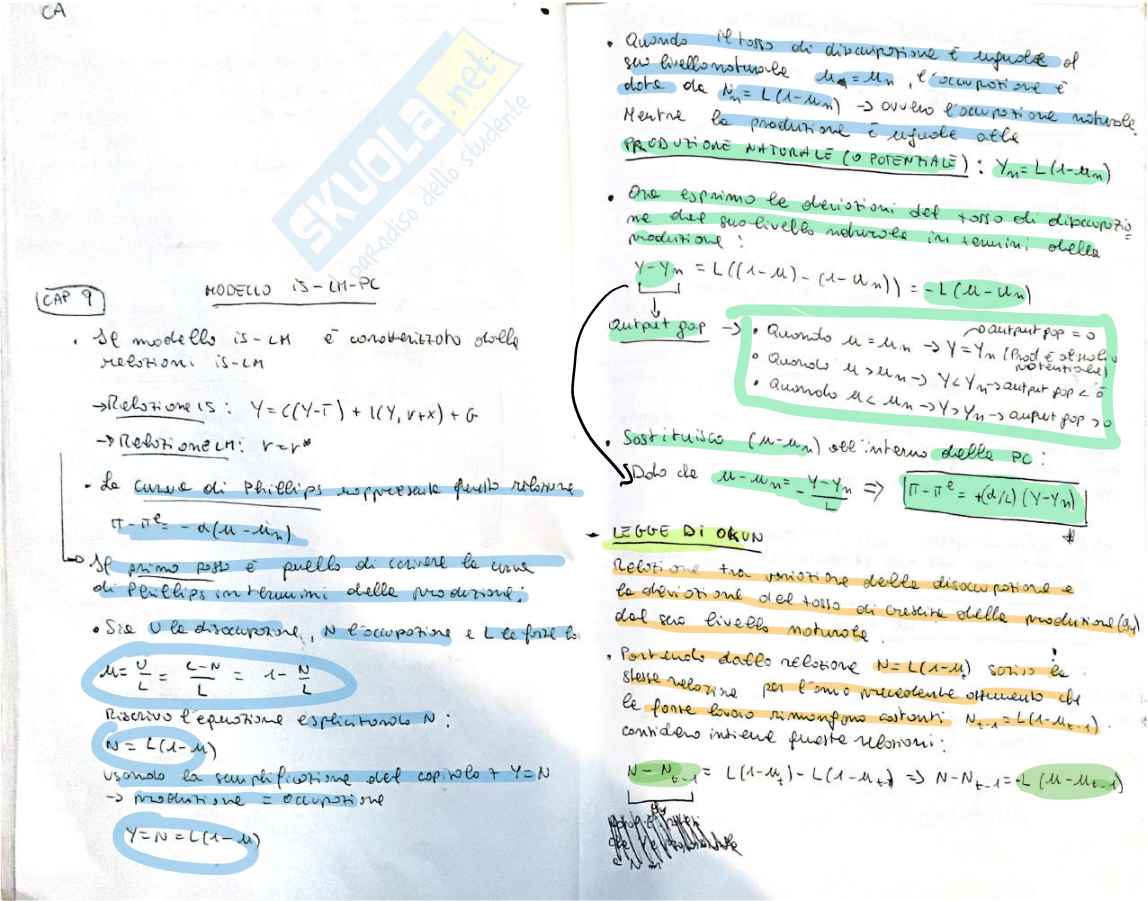 CA
SKUOLA.net
il paradiso dello studente
CAP 9
MODELLO IS-LM-PC
• Il modello IS-LM è caratterizzato dalle
relazioni IS-LM
→ Relazione IS: Y = C(Y-T) + I(Y, r+x) + G
→ Relazione LM: r = r*
• La curva di Phillips rappresenta questa relazione
π - πᵉ = - α(u - uₙ)
→ Il primo passo è quello di scrivere la curva
di Phillips in termini della produzione:
• Sia U la disoccupazione, N l'occupazione e L le forze la
u = U/L = L-N/L = 1 - N/L
Riscrivo l'equazione esplicitando N:
N = L(1-u)
usando la semplificazione del capitolo 7 Y=N
→ produzione = occupazione
Y = N = L(1-u)
• Quando il tasso di disoccupazione è uguale al
suo livello naturale u = uₙ, l'occupazione è
data da Nₙ = L(1-uₙ) → ovvero l'occupazione naturale
Mentre la produzione è uguale alla
PRODUZIONE NATURALE (O POTENZIALE): Yₙ = L(1-uₙ)
• Ora esprimo le deviazioni del tasso di disoccupazio=
ne dal suo livello naturale in termini della
produzione:
Y-Yₙ = L((1-u) - (1-uₙ)) = -L(u-uₙ)
→ output gap = 0
Output gap → • Quando u = uₙ → Y = Yₙ (Prod è al suo liv
potenziale)
• Quando u > uₙ → Y < Yₙ → output gap < 0
• Quando u < uₙ → Y > Yₙ → output gap > 0
• Sostituisco (u-uₙ) all'interno della PC:
Dato che u-uₙ = - Y-Yₙ/L ⇒ π-πᵉ = +(α/L)(Y-Yₙ)
• LEGGE DI OKUN
Relazione tra variazione della disoccupazione e
la deviazione del tasso di crescita della produzione (gy)
dal suo livello naturale.
• Partendo dalla relazione N = L(1-uₜ) scrivo la
stessa relazione per l'anno precedente assumendo che
le forze lavoro rimangono costanti Nₜ₋₁ = L(1-uₜ₋₁).
considero insieme queste relazioni:
N - Nₜ₋₁ = L(1-uₜ) - L(1-uₜ₋₁) ⇒ N-Nₜ₋₁ = -L(u-uₜ₋₁)